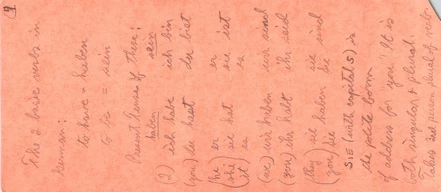 The 2 basic verbs in
German:
to have = haben
to be = sein
Present tense of these:
haben sein
(I) ich habe ich bin
(you) du hast du bist
(he) er er
(she) sie hat sie ist
(it) es es
(we) wir haben wir sind
(you) ihr habt ihr seid
(they) sie haben sie sind
you, Sie Sie
SIE (with capital S) is
the polite form
of address for "you". It is
both singular & plural.
Takes 3rd person plural of verb.